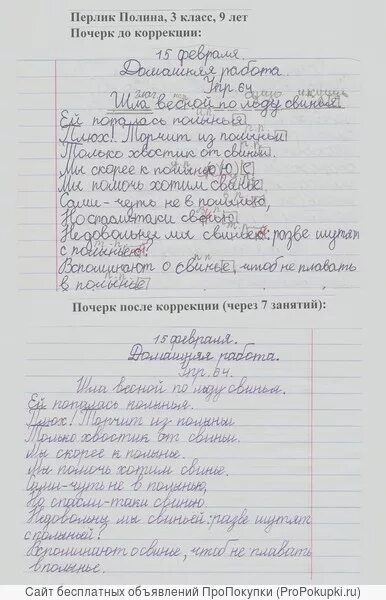 Перлик Полина, 3 класс, 9 лет
Почерк до коррекции:
15 февраля.
Домашняя работа.
Упр.64
Шла весной по льду свинья
Ей попалась полынья
Плюх! Торчит из полыньи
Только хвостик от свиньи.
Мы скорее к полынье
Мы помочь хотим свинье
Сами-чуть не в полынью,
Но спасли-таки свинью
Недовольны мы свиньей: разве шутят
с полыньей
Вспоминают о свинье, чтоб не плавать
в полынье
Почерк после коррекции (через 7 занятий):
15 февраля.
Домашняя работа.
Упр.64.
Шла весной по льду свинья.
Ей попалась полынья.
Плюх! Торчит из полыньи
Только хвостик от свиньи.
Мы скорее к полынье.
Мы помочь хотим свинье.
Сами-чуть не в полынью,
Но спасли-таки свинью.
Недовольны мы свиньей: разве шутят
с полыньей?
Вспоминают о свинье, чтоб не плавать
в полынье.
Сайт бесплатных объявлений ПроПокупки (ProPokupki.ru)